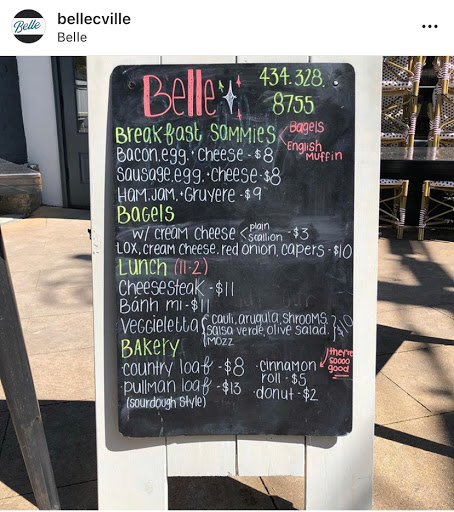 Belle
bellecville
Belle
Belle
434.328.
8755
Breakfast Sammies < Bagels
English
Muffin
Bacon.egg.·Cheese - $8
Sausage.egg.·Cheese - $8
Ham.Jam.·Gruyere - $9
Bagels
w/ cream cheese < plain
scallion - $3
Lox, cream cheese, red onion, capers - $10
Lunch (11-2)
Cheesesteak - $11
Bánh mi - $11
Veggieletta { cauli, arugula, shrooms,
salsa verde, olive salad,
mozz } $10
Bakery
they're
soooo
good
country loaf - $8
·pullman loaf - $13
(sourdough style)
·cinnamon
roll - $5
·donut - $2